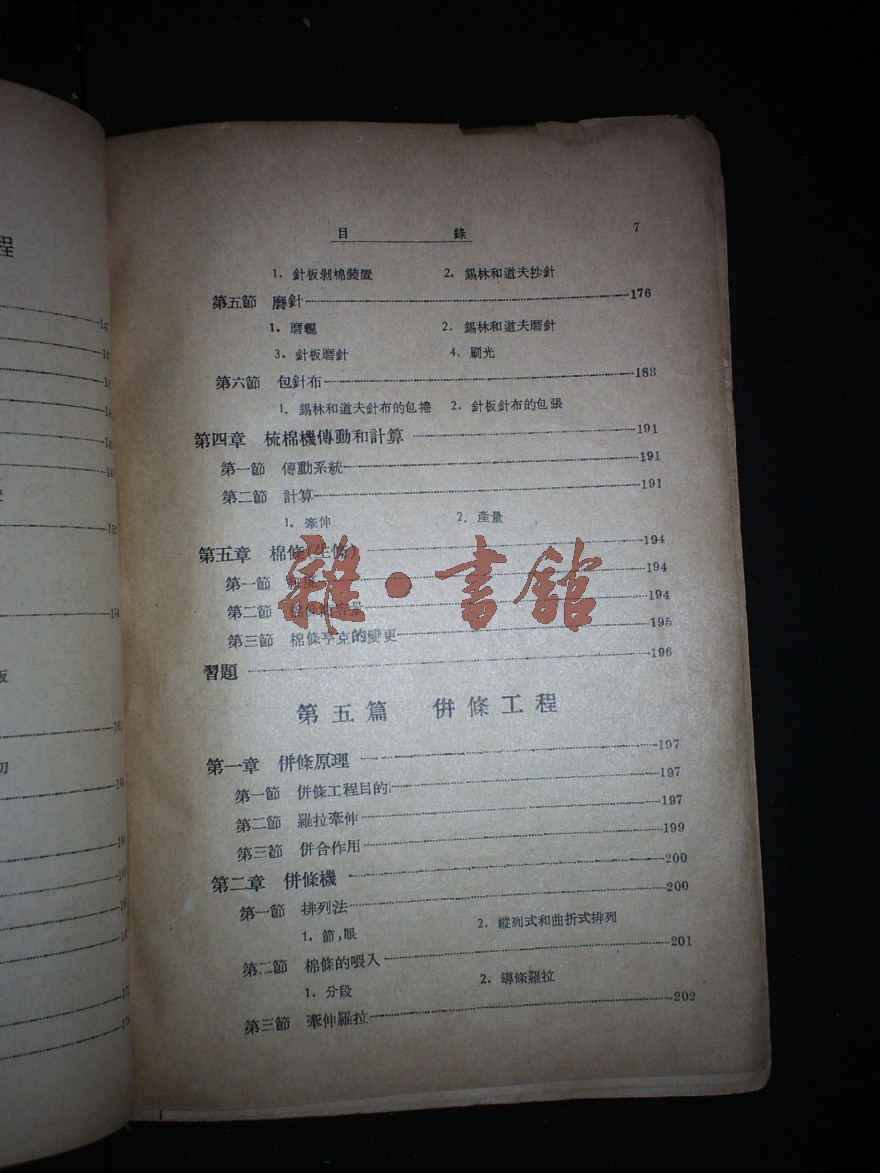 程
目 錄 7
1. 針板剝棉裝置 2. 錫林和道夫抄針
第五節 磨針 176
1. 磨輥 2. 錫林和道夫磨針
3. 針板磨針 4. 刷光
第六節 包針布 183
1. 錫林和道夫針布的包捲 2. 針板針布的包張
第四章 梳棉機傳動和計算 191
第一節 傳動系統 191
第二節 計算 191
1. 牽伸 2. 產量
第五章 棉條(生條) 194
第一節 194
第二節 棉條 容量 194
第三節 棉條亨克的變更 195
習題 196
雜·書館
第五篇 併條工程
第一章 併條原理 197
第一節 併條工程目的 197
第二節 羅拉牽伸 197
第三節 併合作用 199
第二章 併條機 200
第一節 排列法 200
1. 節,眼 2. 縱列式和曲折式排列
第二節 棉條的喂入 201
1. 分段 2. 導條羅拉
第三節 牽伸羅拉 202